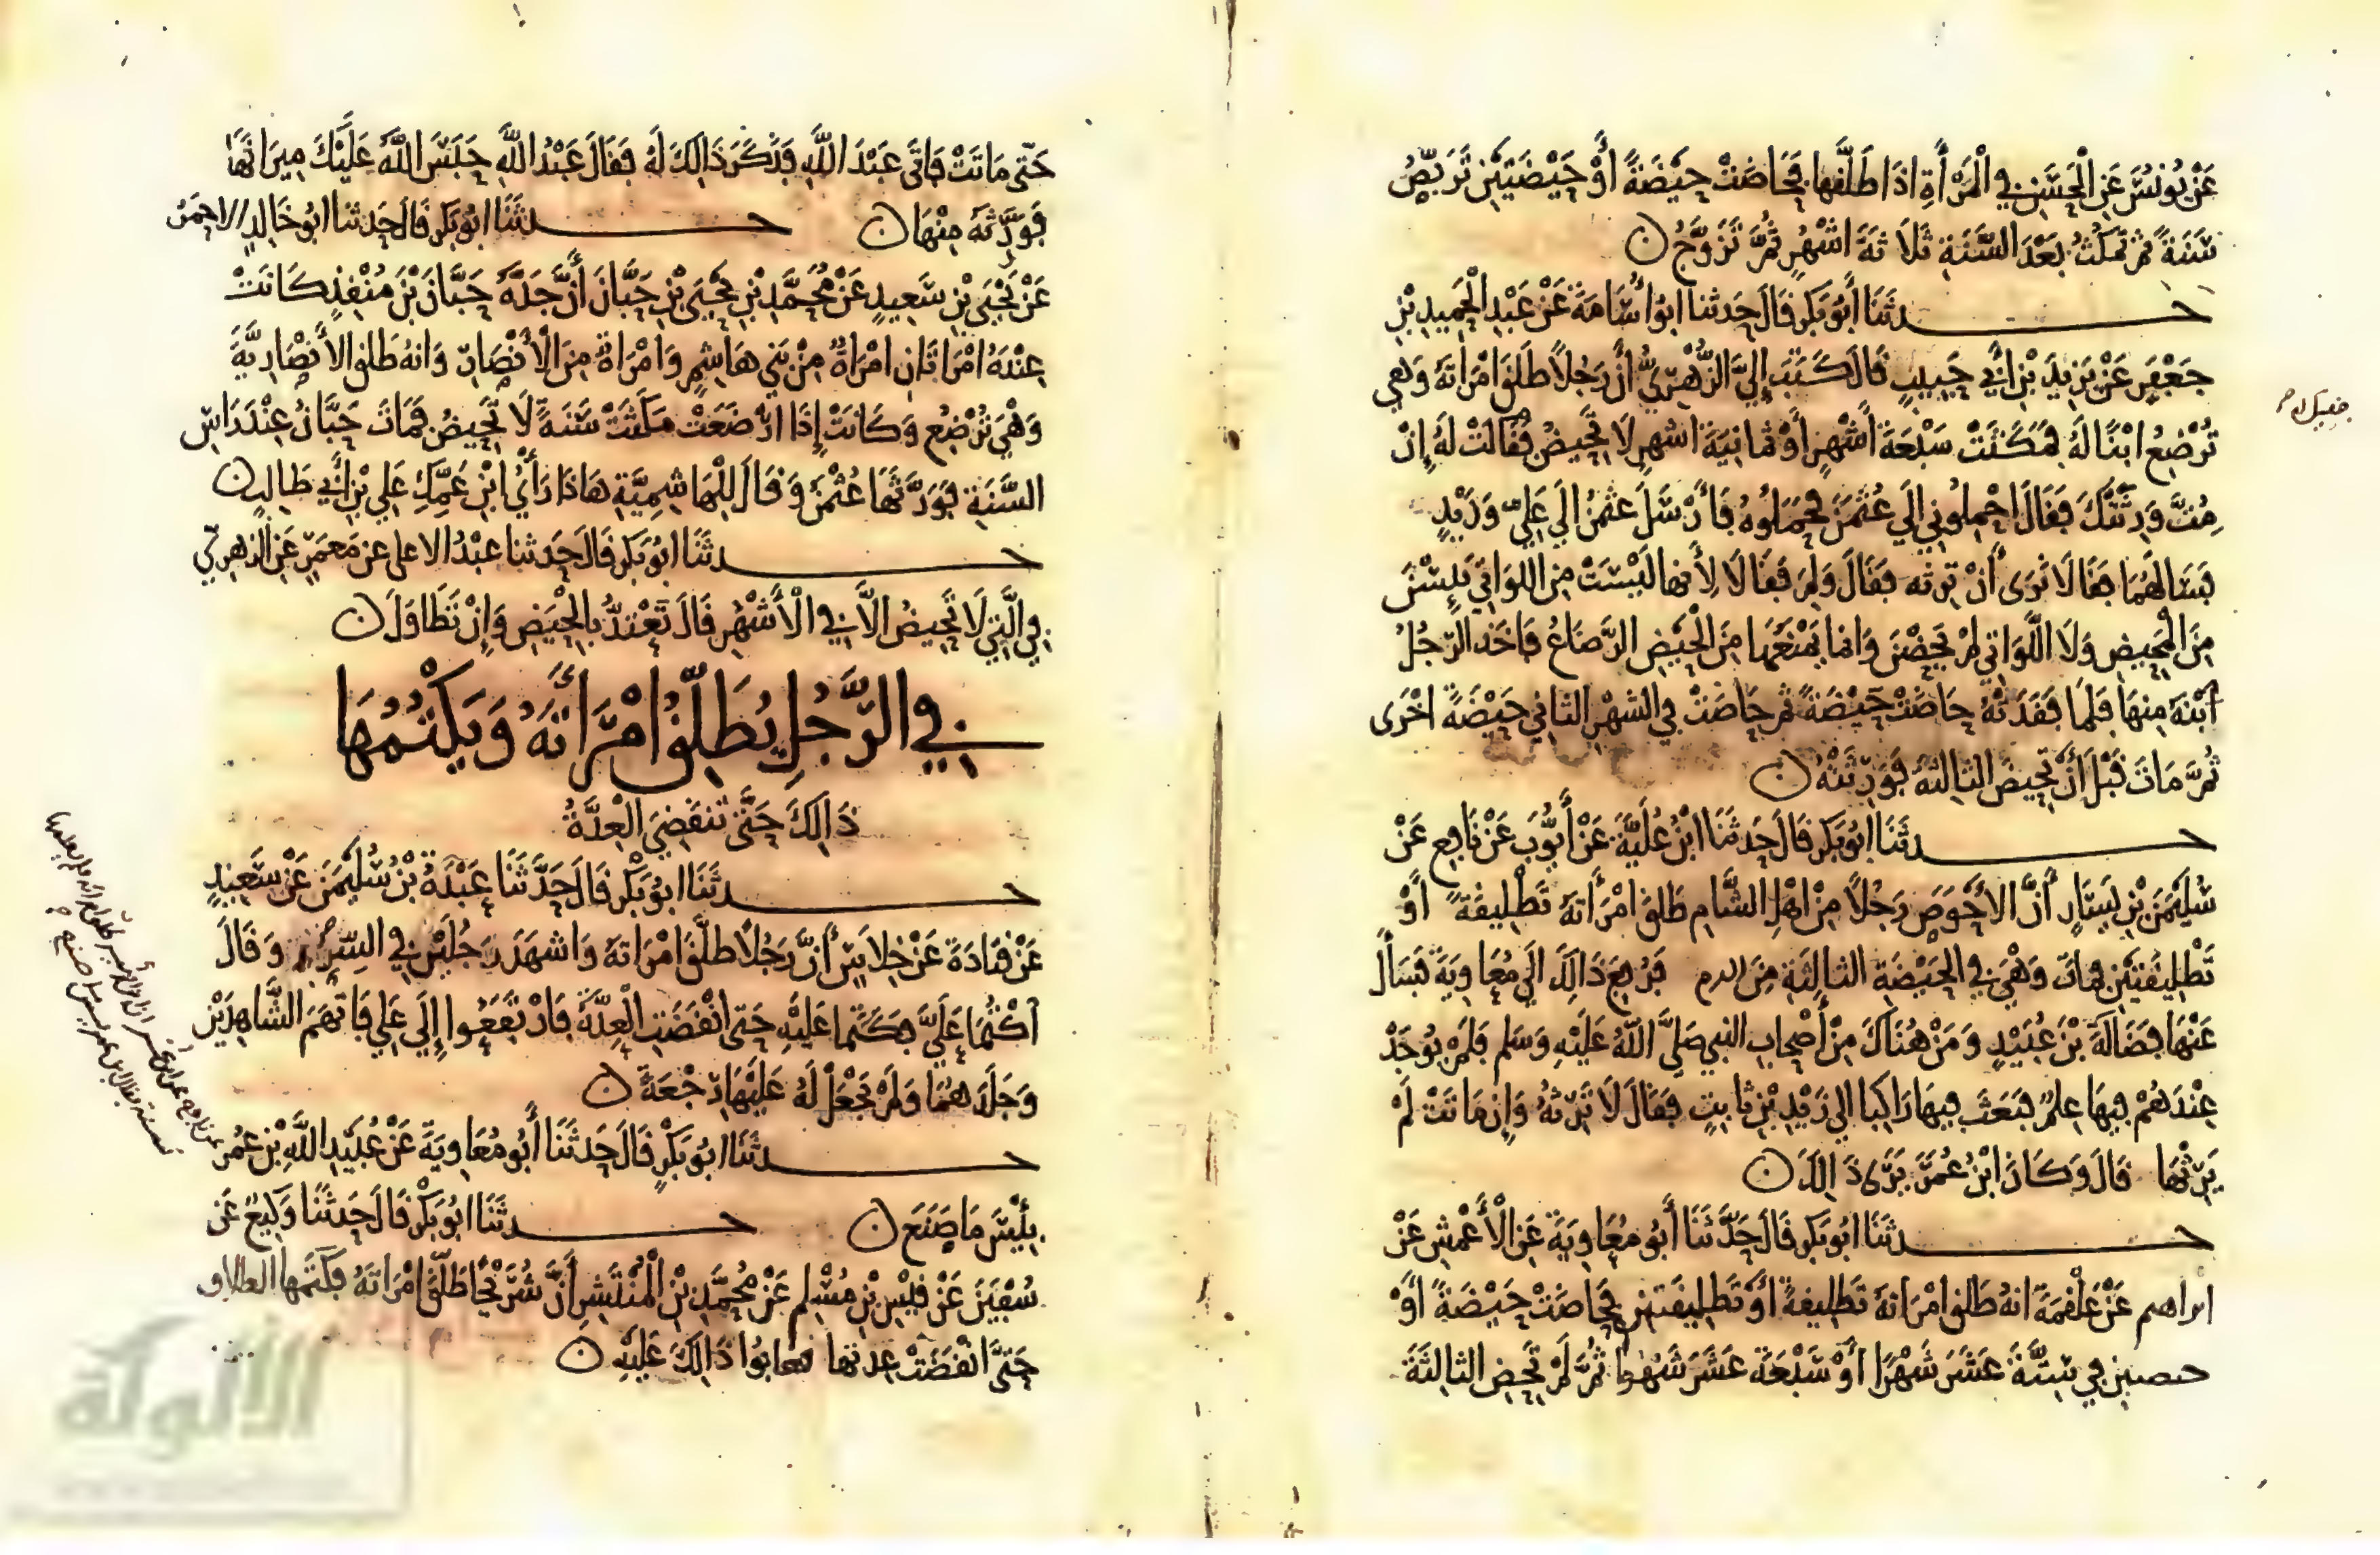 عَنْ يُونُسَ عَنِ الْحَسَنِ فِي الْمَرْأَةِ اِذَا طَلَّقَهَا فَحَاضَتْ حَيْضَةً أَوْ حَيْضَتَيْنِ تَرَبَّصُ
سَنَةً ثُمَّ تَمْكُثُ بَعْدَ السَّنَةِ ثَلَاثَةَ اَشْهُرٍ ثُمَّ تَزَوَّجُ ن
حدثَنَا أَبُو بَكْرٍ قَالَ حَدثنا ابُو أُسَامَةَ عَنْ عَبْدِ الْحَمِيدِ بْنِ
جَعْفَرٍ عَنْ يَزِيدَ بْنِ أَبِي حَبِيبٍ قَالَ كَتَبَ إِلَيَّ الزُّهْرِيُّ أَنَّ رَجُلًا طَلَّقَ امْرَاتَهُ وَهِيَ
تُرْضِعُ ابْنًا لَهُ فَمَكَثَتْ سَبْعَةَ أَشْهُرٍ أَوْ ثمَانِيَةَ اشهرٍ لَا تَحِيضُ فَقَالَتْ لَهُ إِنْ
مِتَّ وَرِثْتُكَ فَقَالَ احْمِلُونِي إِلَى عُثْمَنَ فَحَمَلُوهُ فَأَرْسَلَ عثمَنُ إِلَى عَلِيٍّ وَزَيْدٍ
فَسَالَهُمَا فَقَالَا نَرَى أَنْ تَرِثَه فَقَالَ وَلِمَ فَقَالَا لِأَنهَا لَيْسَتْ مِنَ اللوَاتِي يَئِسْنَ
مِنَ الْمَحِيضِ وَلَا اللَّوَاتِي لَمْ يَحِضْنَ وَانمَا يَمْنَعُهَا مِنَ الْحَيْضِ الرَّضَاعُ فَاخَذ الرَّجُلُ
ابْنَهُ مِنهَا فَلَمَا فَقَدَتْهُ حَاضَتْ حَيْضَةً ثم حَاضَتْ فِي الشهْرِ الثانِي حَيْضَةً اُخْرَى
ثُمَّ مَاتَ قَبْلَ أَنْ تَحِيضَ الثالثَةَ فَوَرِثَتْهُ ن
حدثَنَا ابُو بَكْرٍ قَالَ حَدثَنَا ابْنُ عُلَيَّةَ عَنْ أَيُّوبَ عَنْ نَافِعٍ عَنْ
سُلَيْمَنَ بْنِ يَسَارٍ أَنَّ الْاَحْوَصَ رَجُلًا مِنْ اهْلِ الشَّامِ طَلَّقَ امْرَأَتَهُ تَطْلِيقَةً اَوْ
تَطْلِيقَتَيْنِ فمَاتَ وَهْيَ فِي الحَيْضَةِ الثالِثَةِ مِنَ الدم فَرُفِعَ ذَالِكَ إِلَى مُعَاوِيَةَ فَسَأَلَ
عَنْهَا فَضَالَةَ بْنَ عُبَيْدٍ وَمَنْ هُنَاكَ مِنْ أَصْحَابِ النبي صَلَّى اللهُ عَلَيْهِ وَسَلم فَلَمْ يُوجَدْ
عِنْدَهُمْ فِيهَا عِلمٌ فَبَعَثَ فِيهَا رَاكِبًا إِلَى زَيْدِ بْنِ ثَابِتٍ فَقَالَ لَا تَرِثُهُ وَإِن مَاتَتْ لَمْ
يَرِثْهَا قَالَ وَكَانَ ابْنُ عُمَرَ يَرَى ذَالِكَ ن
حدثَنَا ابُو بَكْرٍ قَالَ حَدَّثَنَا أَبُو مُعَاوِيَةَ عَنِ الْأَعْمَشِ عَنْ
ابراهيم عَنْ عَلْقَمَةَ انهُ طَلَّقَ امْرَاتهُ تَطْلِيقَةً أَوْ تَطْلِيقَتَيْنِ فَحَاضَتْ حَيْضَةً اَوْ
حيضتين فِي سِتَّةَ عَشَرَ شَهْرًا أَوْ سَبْعَةَ عَشَرَ شَهْرا ثُمَّ لَمْ تَحِضِ الثالِثَةَ
حَتَّى مَاتَتْ فَاتَى عَبْدَ اللَّهِ فَذَكَرَ ذَالِكَ لَهُ فَقَالَ عَبْدُ اللَّهِ حَبَسَ اللَّهُ عَلَيْكَ مِيرَاثَهَا
فَوَرَّثَهُ مِنْهَا ن حدثَنَا ابُو بَكْرٍ قَالَ حَدثنا ابُو خَالِدٍ الاحمَرُ
عَنْ يَحْيَى بْنِ سَعِيدٍ عَنْ مُحَمَّدِ بْنِ يَحْيَى بْنِ حَبَّانَ أَنَّ جَدَّهُ حَبَّانَ بْنَ مُنْقِذٍ كَانَتْ
عِنْدَهُ امْرَاتَانِ امْرَاةٌ مِنْ بَنِي هَاشِمٍ وَامْرَاةٌ مِنَ الْأَنْصَارِ وَانهُ طَلق الْأَنْصَارِيَّةَ
وَهْيَ تُرْضِعُ وَكَانَتْ إِذَا ارْضَعَتْ مَكَثَتْ سَنَةً لَا تَحِيضُ فَمَاتَ حَبَّانُ عِنْدَ رَاسِ
السَّنَةِ فَوَرَّثَهَا عُثْمَنُ وَقَالَ لِلْهَاشِمِيَّةِ هَاذَا رَأْيُ ابْنِ عَمِّكِ عَلِي بْنِ أَبِي طَالِبٍ ن
حدثَنَا ابُو بَكْرٍ قَالَ حَدثنا عبْدُ الاعلى عن مَعْمَرٍ عَنِ الزهرِيِّ
فِي الَّتِي لَا تَحِيضُ الَّا فِي الْأَشْهُرِ قَالَ تَعْتَدُّ بِالْحَيْضِ وَإِنْ تَطَاوَلَ ن
فِي الرَّجُلِ يُطَلِّقُ امْرَأَتَهُ وَيَكْتُمُهَا
ذَالِكَ حَتَّى تَنقَضِيَ الْعِدَّةُ
حدثَنَا ابُو بَكْرٍ قَالَ حَدَّثَنَا عَبْدَةُ بْنُ سُلَيْمَنَ عَنْ سَعِيدٍ
عَنْ قَتَادَةَ عَنْ خِلَاسٍ أَنَّ رَجُلًا طَلَّقَ امْرَاتَهُ وَاشهَدَ رَجُلَيْنِ فِي السِّرِّ وَقَالَ
اكْتُمَا عَلَيَّ فَكَتَمَا عَلَيْهِ حَتَّى انْقَضَتِ الْعِدَّةُ فَارْتَفَعُوا إِلَى عَلِيٍّ فَاتَّهَمَ الشَّاهِدَيْنِ
وَجَلَدَهُمَا وَلَمْ يَجْعَلْ لَهُ عَلَيْهَا رَجْعَةً ن
حدثَنَا ابُو بَكْرٍ قَالَ حَدثَنَا أَبُو مُعَاوِيَةَ عَنْ عُبَيْدِ اللَّهِ بْنِ عُمَر
بِئْسَ مَا صَنَعَ ن حدثَنَا ابُو بَكْرٍ قَالَ حَدثَنَا وَكِيعٌ عَن
سُفْيَنَ عَنْ قَيْسِ بْنِ مُسْلِمٍ عَنْ مُحَمَّدِ بْنِ الْمُنْتَشِرِ أَنَّ شُرَيْحًا طَلَّقَ امْرَاتَهُ فَكَتَمَهَا الطلاق
حَتَّى انْقَضَتْ عِدتهَا فعابُوا ذَالِكَ عَلَيْهِ ن
الألوكة